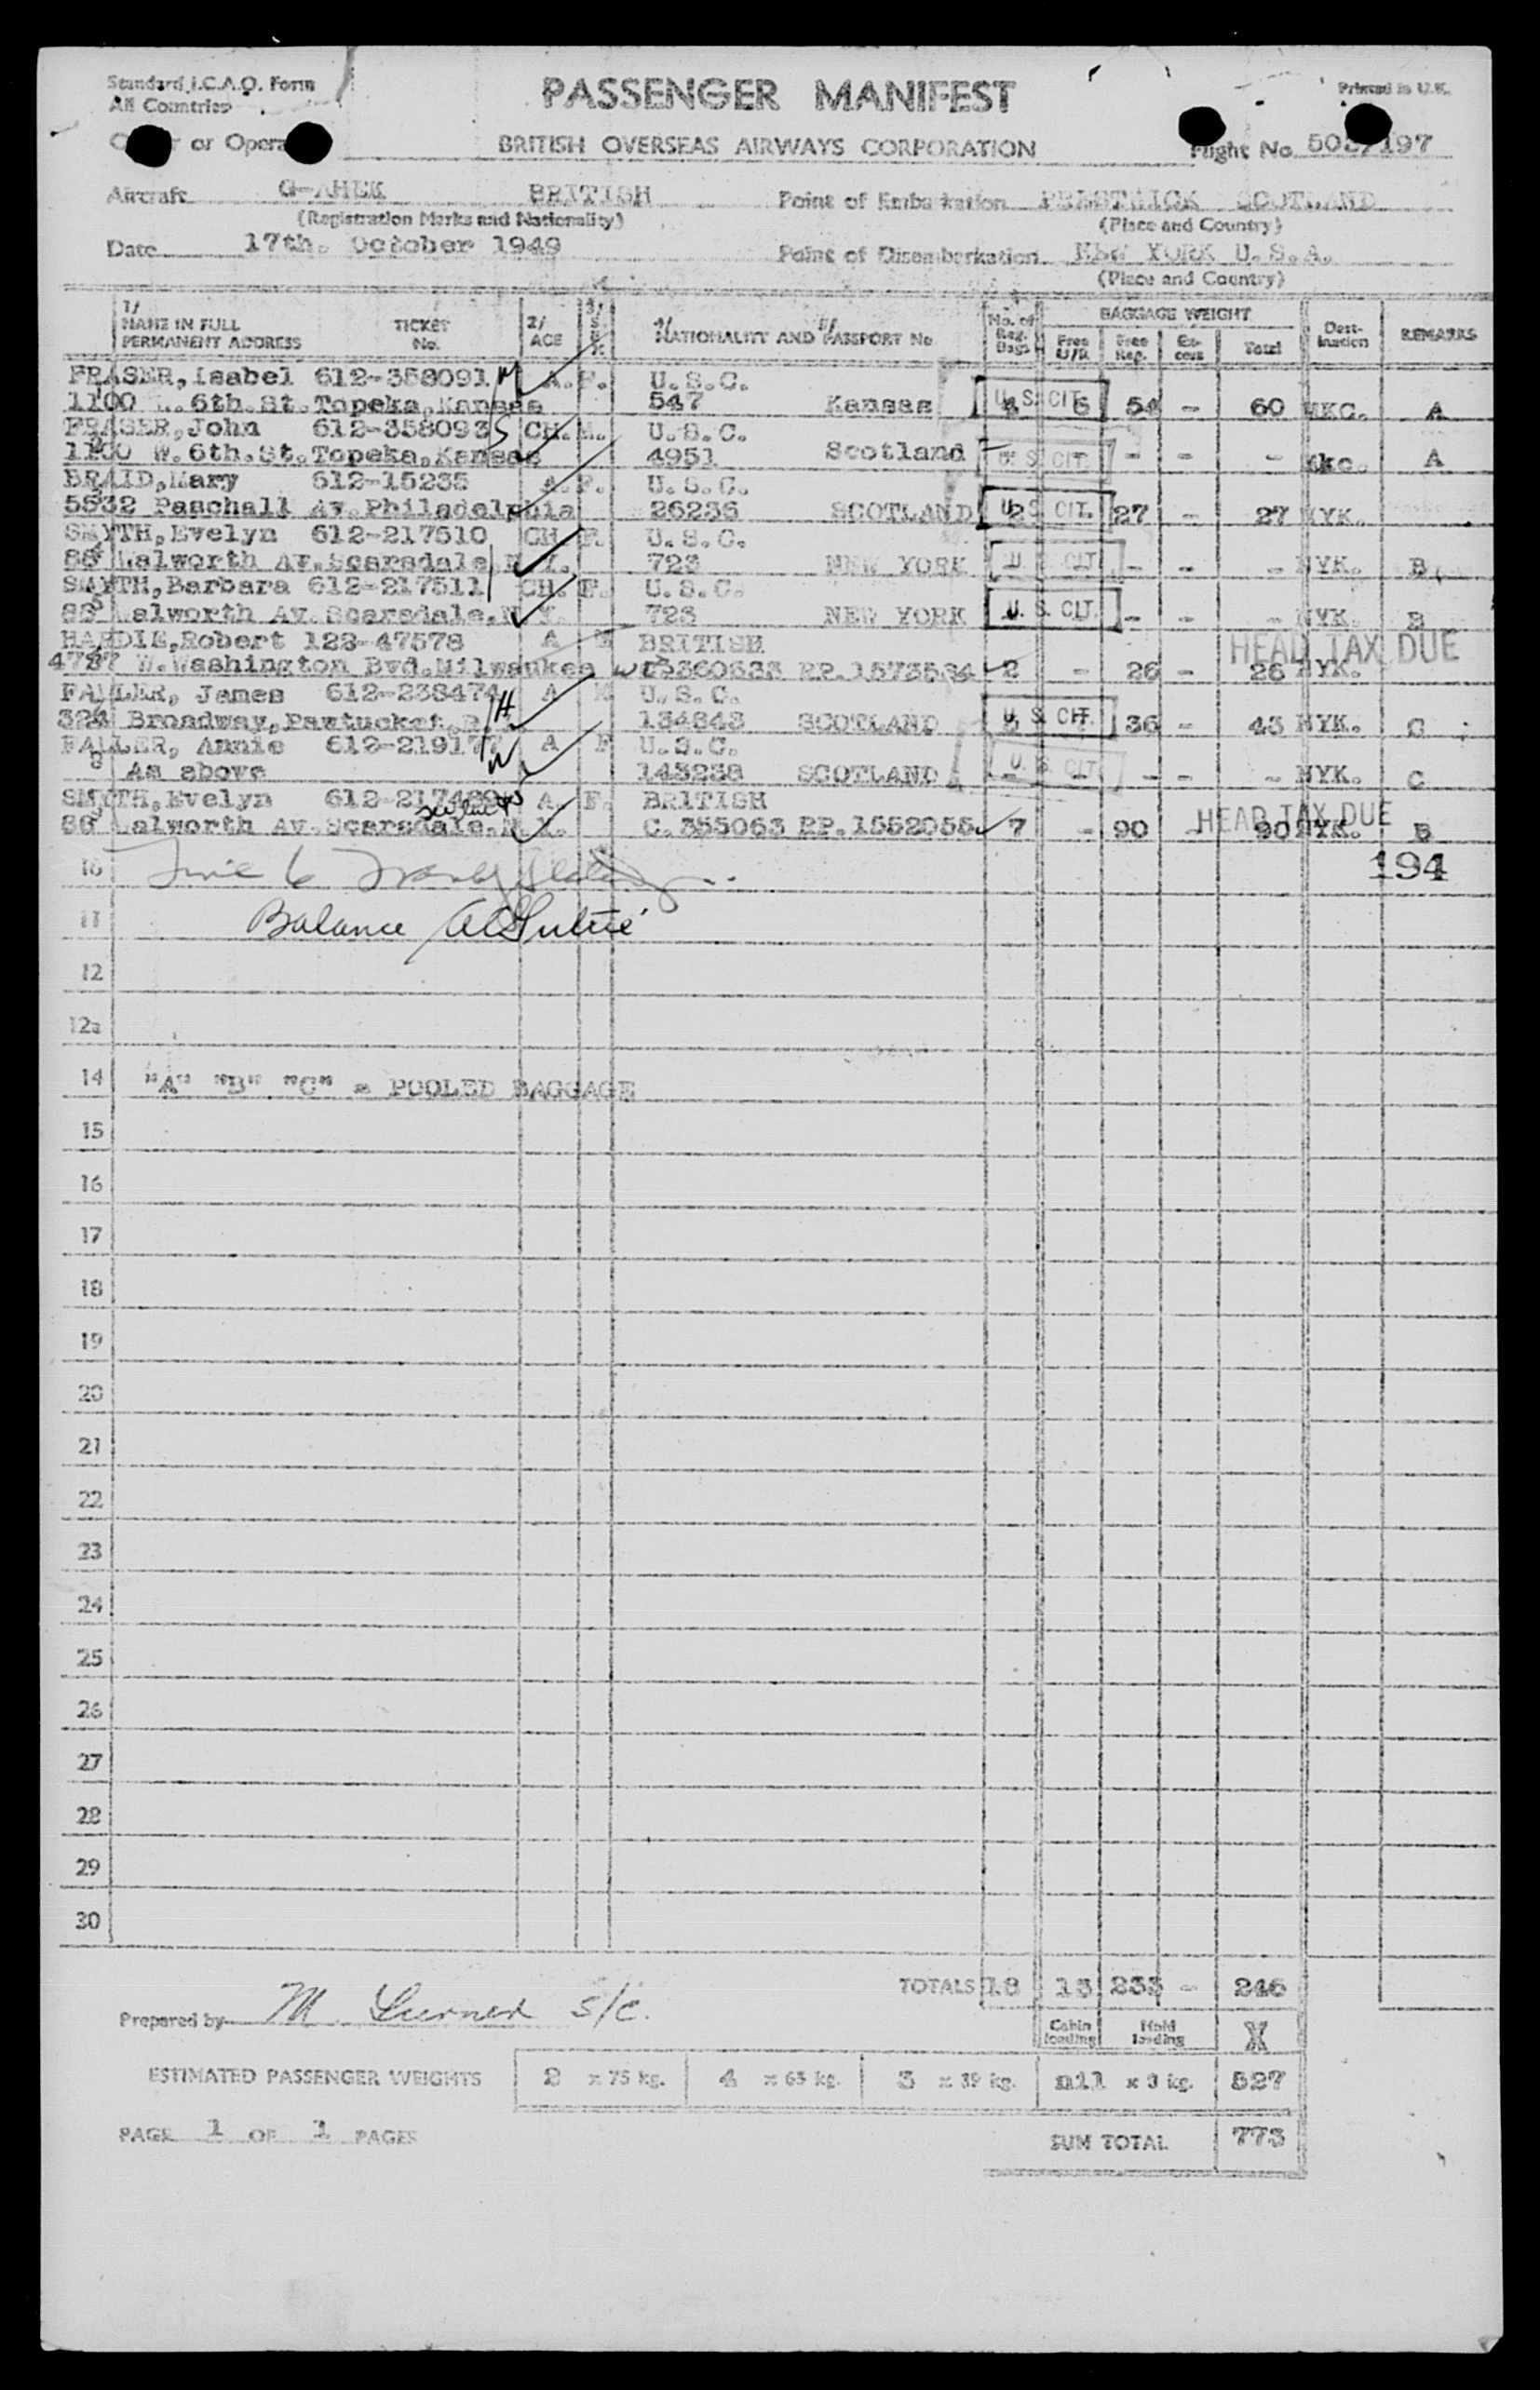 Standard I.C.A.O. Form
All Countries
PASSENGER MANIFEST
Printed in U.K.
or Opera
BRITISH OVERSEAS AIRWAYS CORPORATION
Flight No 197
Aircraft G-AHEK BRITISH Point of Embarkation PRESTWICK SCOTLAND
(Registration Marks and Nationality) (Place and Country)
Date 17th. October 1949 Point of Disembarkation NEW YORK U.S.A.
(Place and Country)
1/ NAME IN FULL PERMANENT ADDRESS TICKET No. 2/ AGE 3/ SEX 4/ NATIONALITY AND 5/ PASSPORT No No. of Reg. Bags BAGGAGE WEIGHT Free U/R Free Reg. Ex-cess Total Dest-ination REMARKS
FRASER, Isabel 612-358091 W A. F. U.S.C.
1100 W. 6th. St. Topeka, Kansas 547 Kansas U. S. CIT. 4 6 54 - 60 MKC. A
FRASER, John 612-358093 S CH. M. U.S.C.
1100 W. 6th. St. Topeka, Kansas 4951 Scotland - U. S. CIT. - - - Mkc. A
BRAID, Mary 612-15235 A. F. U.S.C.
5532 Paschall Av. Philadelphia 26236 SCOTLAND U. S. CIT. 2 27 - 27 NYK.
SMYTH, Evelyn 612-217510 CH. F. U.S.C.
86 Walworth Av. Scarsdale, N.Y. 723 NEW YORK U. S. CIT. - - - NYK. B
SMYTH, Barbara 612-217511 CH. F. U.S.C.
86 Walworth Av. Scarsdale, N.Y. 723 NEW YORK U. S. CIT. - - - NYK. B
HARDIE, Robert 123-47578 A M BRITISH HEAD TAX DUE
4727 W. Washington Bvd. Milwaukee 360633 PP. 1573584 2 - 26 - 26 NYK.
FAULER, James 612-238474 H A M U.S.C.
324 Broadway, Pawtucket, R. 134843 SCOTLAND U. S. CIT. 36 - 43 NYK. C
FAULER, Annie 612-219177 W A F U.S.C.
8 As above 143238 SCOTLAND U. S. CIT. - - - - NYK. C
SMYTH, Evelyn 612-217489 A. F. BRITISH HEAD TAX DUE
86 Walworth Av. Scarsdale, N.Y. C.355063 PP. 1552055 7 - 90 - 90 NYK. B
10 194
11 Balance
12
12a
14 "A" "B" "C" = POOLED BAGGAGE
15
16
17
18
19
20
21
22
23
24
25
26
27
28
29
30
TOTALS 18 13 233 - 246
Prepared by M. Turner S/C. Cabin loading Hold loading X
ESTIMATED PASSENGER WEIGHTS 2 x 75 kg. 4 x 65 kg. 3 x 39 kg. nil x 8 kg. 527
PAGE 1 OF 1 PAGES SUM TOTAL 773